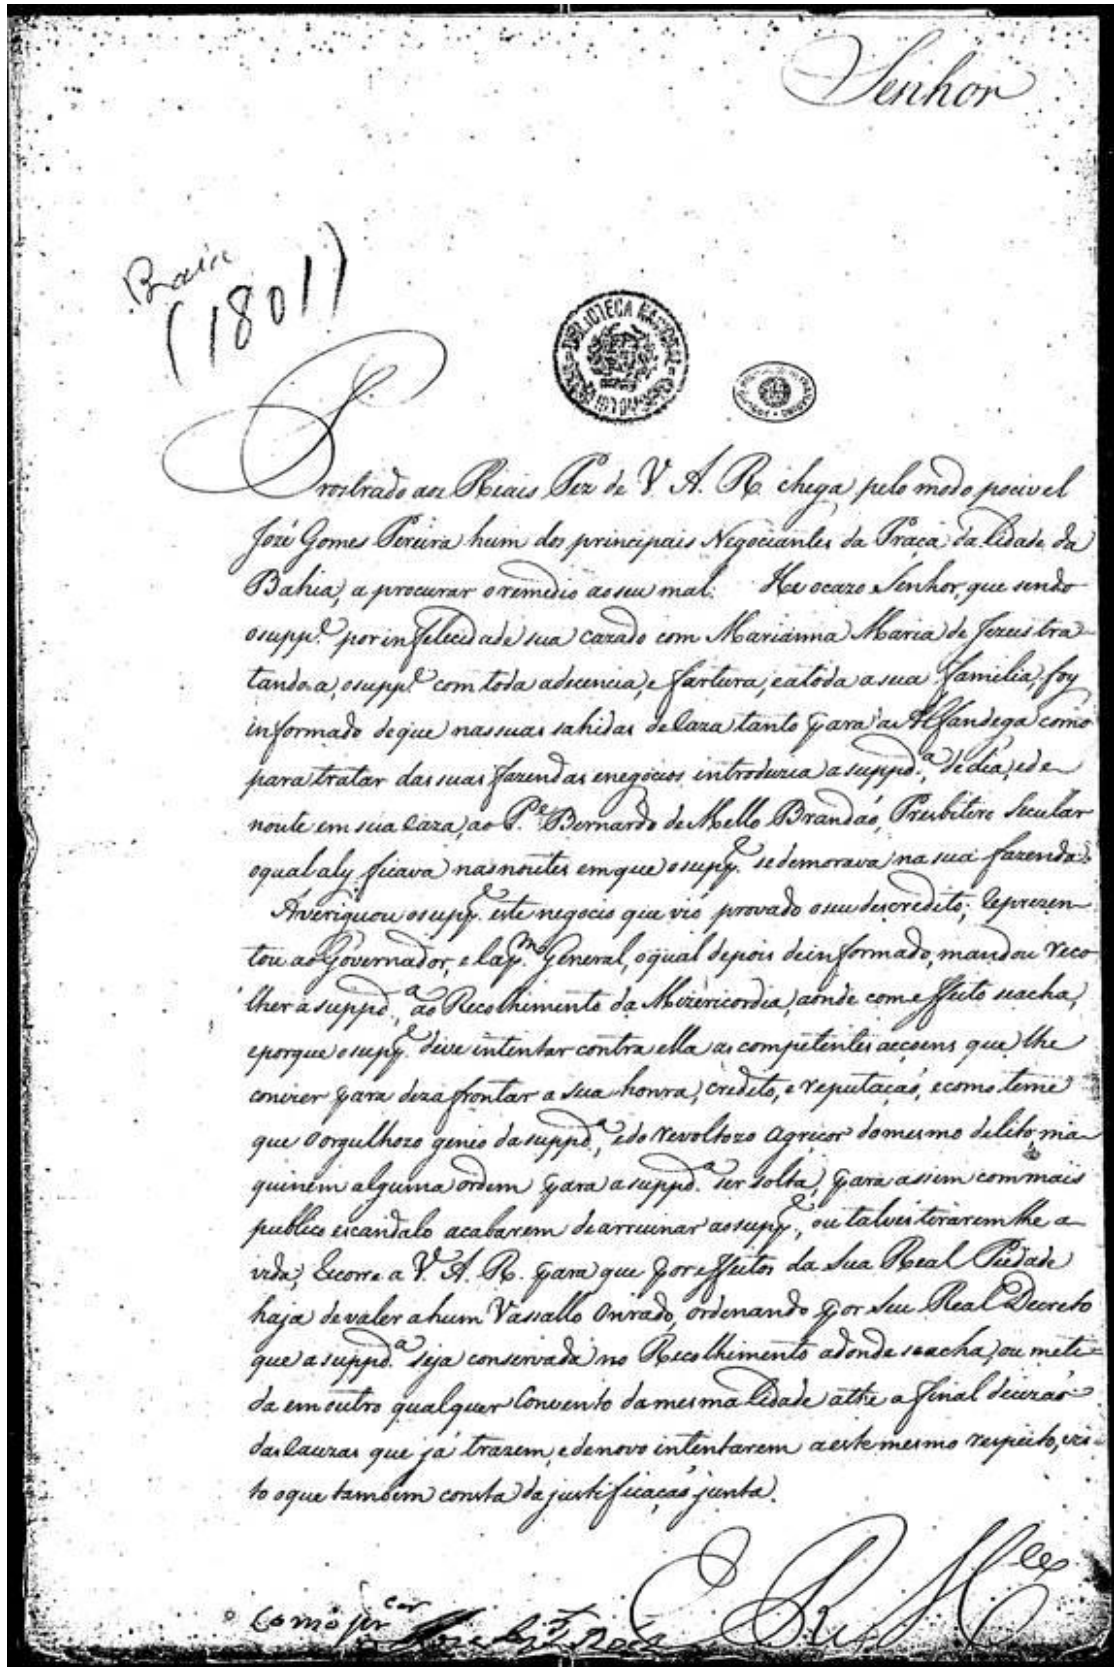 Senhor
Bahia
(1801)
BIBLIOTECA NACIONAL
Prostrado aos Reais Pez de V. A. R. chega pelo modo pocivel
Jozé Gomes Pereira hum dos principais Negociantes da Praça da Cidade da
Bahia, a procurar o remedio ao seu mal: He o cazo Senhor, que sendo
o supp.e por infelecidade sua cazado com Marianna Maria de Jezus tra-
tando-a, o supp.e com toda a decencia, e fartura, e a toda a sua familia, foy
informado de que nas suas sahidas de Caza tanto para a Alfandega como
para tratar das suas fazendas e negocios introduzia a suppd.a, de dia, e de
noute em sua Caza, ao P.e Bernardo de Mello Brandaõ, Presbitero Secular
o qual aly ficava nas noutes em que o supp.e se demorava na sua fazenda.
Averiguou o supp.e este negocio que vio provado o seu descredito; Reprezen-
tou ao Governador, e Cap.m General, o qual depois de informado, mandou reco-
lher a suppd.a ao Recolhimento da Mizericordia, aonde com effeito se acha,
e porque o supp.e deve intentar contra ella as competentes acçoens que lhe
convier para dezafrontar a sua honra, credito, e reputaçaõ, e como teme
que o orgulhozo genio da suppd.a, e do revoltozo Agricor do mesmo delito, ma-
quinem alguma ordem para a suppd.a ser solta, para assim com mais
publico escandalo acabarem de arruinar ao supp.e, ou talves tirarem lhe a
vida; Recorre a V. A. R. para que por effeitos da Sua Real Piedade
haja de valer a hum Vassallo Onrado, ordenando por Seu Real Decreto
que a suppd.a seja conservada no Recolhimento adonde se acha, ou mete-
da em outro qualquer Convento da mesma Cidade athe a final decizaõ
das Cauzas que já trazem, e de novo intentarem a este mesmo respeito, vis-
to o que tambem consta da justificaçaõ junta.
E R M.ce
Como